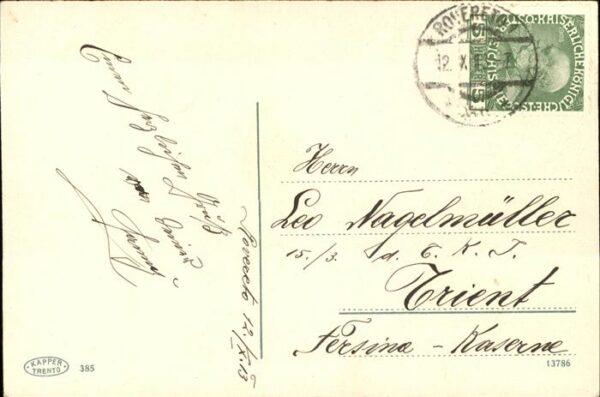 ROVERETO
12. X. 1
K.K. ÖSTERR.
5 HELLER 5
Einen herzlichen Gruß
von Deinem
Rovereto 12./X. 13
Herrn
Leo Nagelmüller
15./3. d. T. K. J.
Trient
Fersina - Kaserne
KAPPER
TRENTO
385
13786